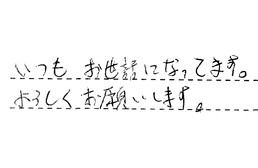 いつも お世話になってます。
よろしくお願いします。